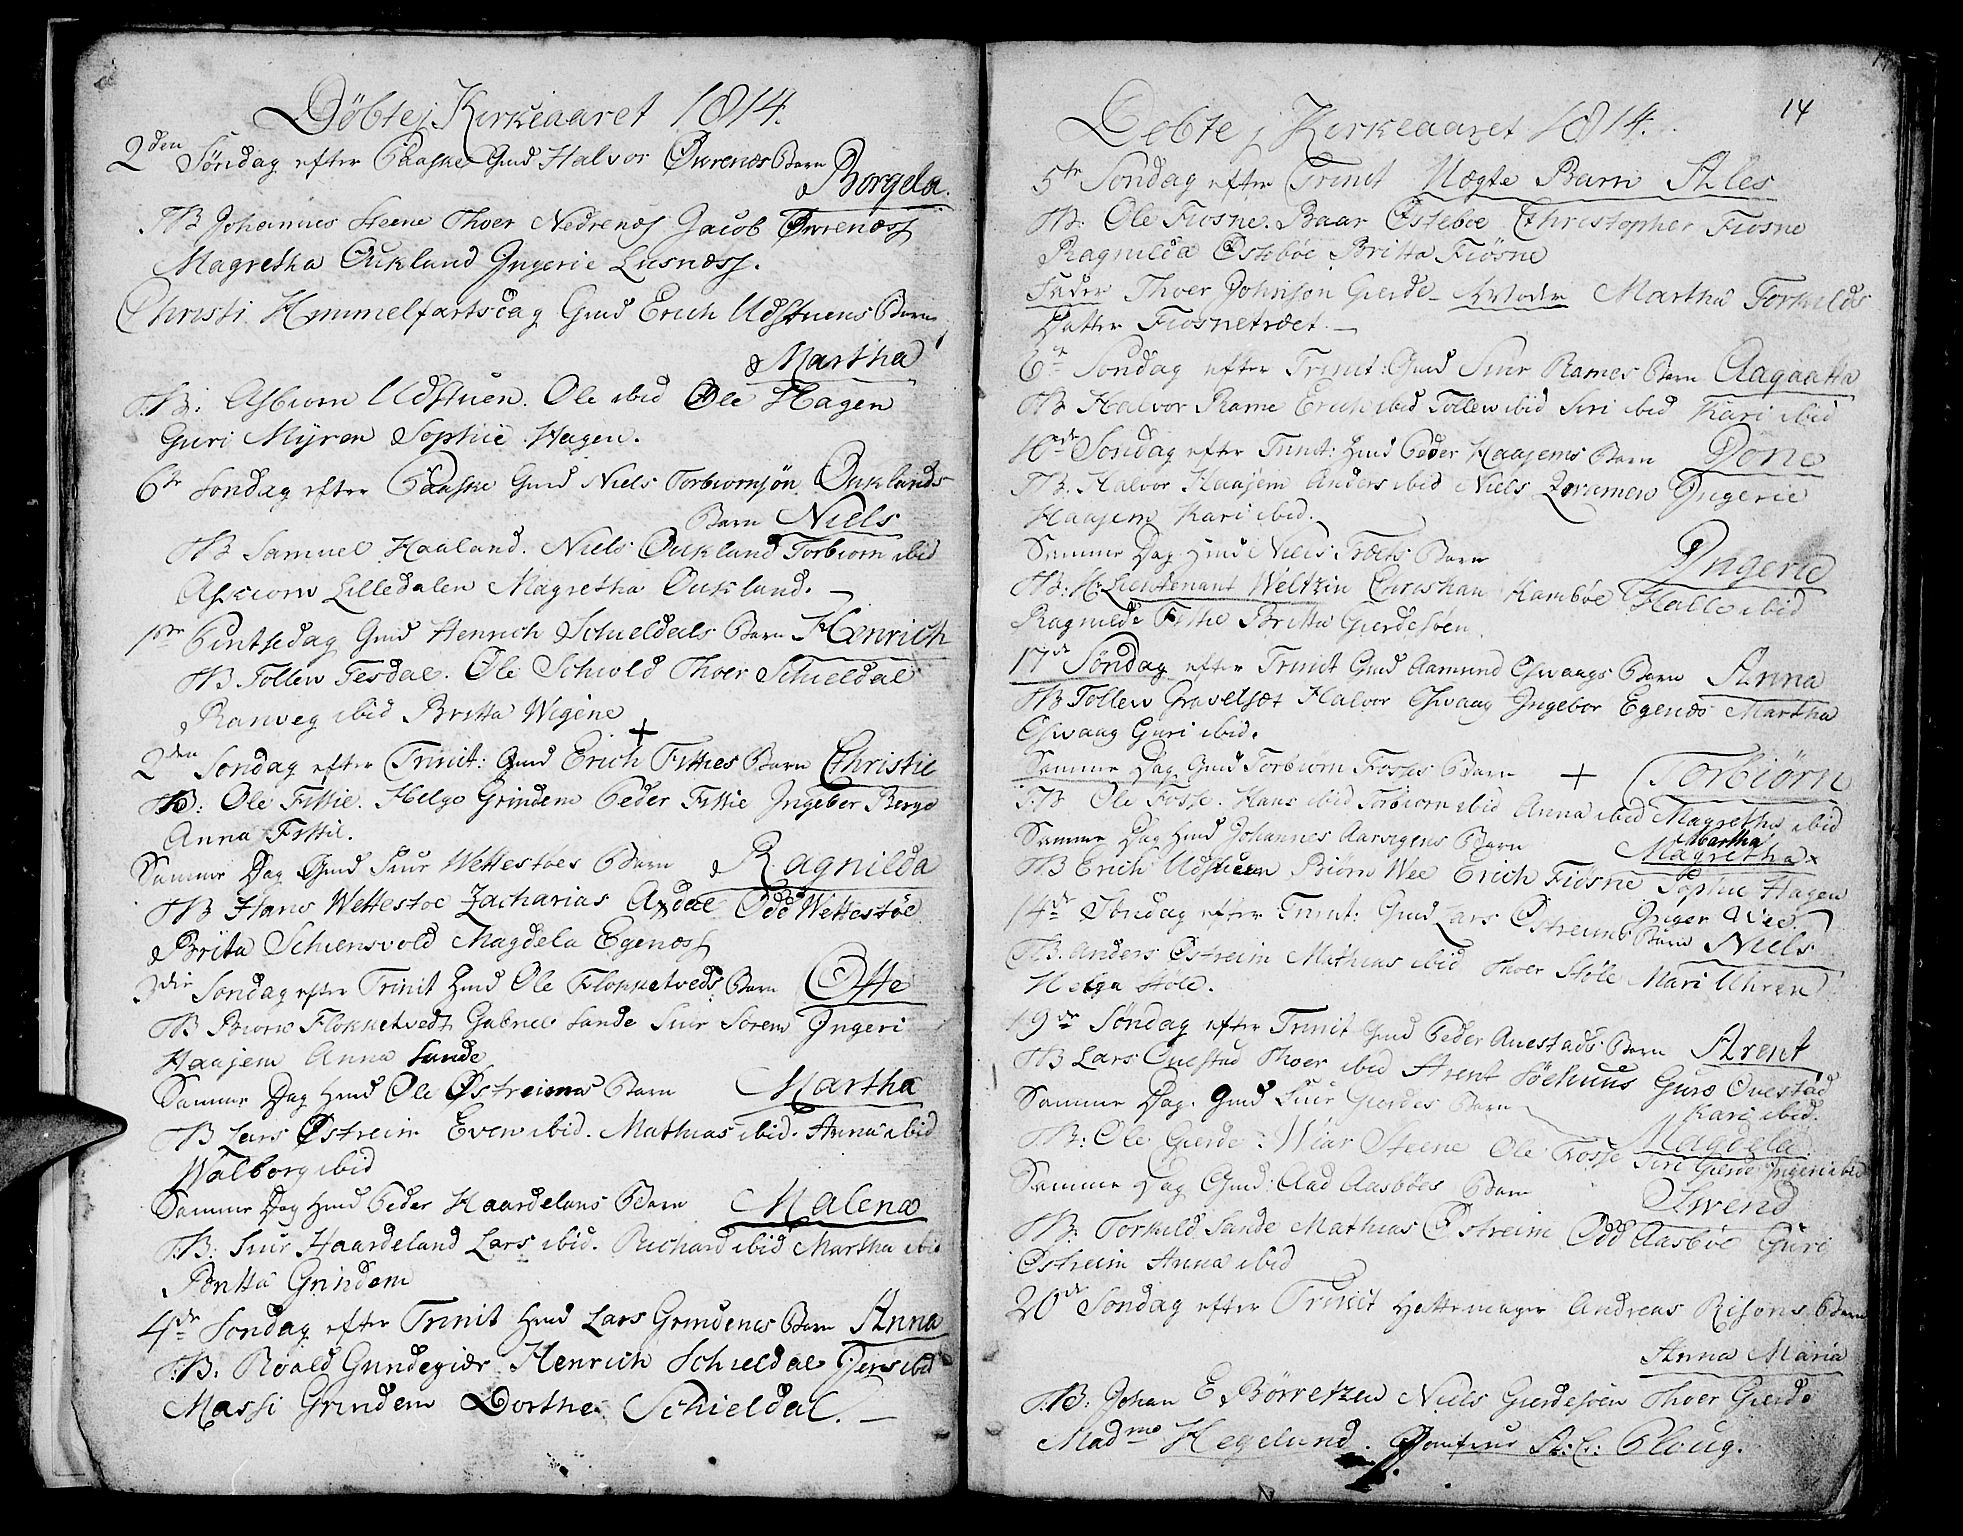 Döbte j Kirkeaaret 1814.
2den Söndag efter Paaske Gmd Halvor Øvrenæs Barn
Borgela.
TB Johannes Steene Thoer Nedrenæs Jacob Øvrenæss
Magretha Ouklaud Jngerie Lusnæss.
Christi Himmelfartsdag Gmd Erich Udstuens Barn
Martha
T.B: Asbiorn Udstuen. Ole ibid Ole Hagen
Guri Myren Sophie Hagen.
6te Sondag efter Paaske Gmd Niels Torbiornsön Ouklands
Barn Niels
TB Samuel Haaland. Niels Oukland Torbiorn ibid
Asbiorn Lilledalen Magretha Oukland.
1ste Pintsedag Gmd Henrich Schieldals Barn Henrich
TB Tollev Tesdal. Ole Schiold Thoer Schieldal
Ranveg ibid Britta Wigene
2den Sondag efter Trinit: Gmd Erich Fitties Barn Christie
TB: Ole Fittie. Helge Grindem Peder Fittie Jngeber Berge
Anna Fittie.
Samme Dag Gmd Siur Wettestöes Barn Ragnilda
TB Hans Wettestoe Zacharias Axdal Odd Wettestöe
Brita Schiensvold Magdela Egenæss
3die Sondag efter Trinit Hmd Ole Flokketveds Barn Offe
TB Biorn Flokketvedt Gabriel Sande Siur Sorem Jngeri
Haajem Anna Sande
Samme Dag Hmd Ole Østreims Barn Martha
TB Lars Østreim Even ibid. Mathias ibid. Anna ibid
Walborg ibid
Samme Dag Hmd Peder Haardelans Barn Malena
T.B: Siur Haardeland Lars ibid. Richard ibid Martha ibid
Britta Grindem
4de Sondag efter Trinit Hmd Lars Grindems Barn Anna
T.B. Roald Henrich Schieldal Jens ibid
Massi Grindem Dorthe Schieldal.
14
Döbte j Kirkeaaret 1814.
5te Sondag efter Trinit Uægte Barn Ales
TB: Ole Fiosne. Baar Østeböe Christopher Fiosne
Ragnilda Østeböe Britta Fiösne
Fader Thoer Johnson Gierde - Moder Martha Torkilds
Datter Fiosnetræet.
6te Sondag efter Trinit: Gmd Siur Rames Barn Aagaatta
TB Halvor Rame Erich ibid Tollev ibid Siri ibid Kari ibid
10de Søndag efter Trinit: Hmd Peder Haajems Barn Done
TB. Halvor Haajem Anders ibid Niels Jngerie
Haajem Kari ibid.
Samme Dag Hmd Niels Træets Barn Jngerie
TB: Hr Lieutenant Weltzin Christian Kamböe Halle ibid
Ragnilde Fittie Britta Gierdesöen.
17de Söndag efter Trinit Gmd Aamund Osvaags Barn Anna
TB Tollev Gravelsæt Halvor Osvaag Jngebor Egenæs Martha
Osvaag Guri ibid.
Samme Dag Gmd Torbiorn Fosses Barn + Torbiörn
T.B Ole Fosse. Hans ibid Torbiorn ibid Anna ibid Magretha ibid
Samme Dag Hmd Johannes Aarvigens Barn Martha
Magretha x
TB Erich Udstuen Biørn Wee Erich Fiosne Sophie Hagen
Jnger Wee
14de Søndag efter Trinit: Gmd Lars Østreims Barn Niels
TB. Anders Østreim Mathias ibid Thoer Stöle Mari Uhren
Helga Stöle.
19de Söndag efter Trinit Gmd Peder Auestads Barn Arent
TB Lars Ouestad Thoer ibid Arent Söehuus Guro Ouestad
Kari ibid.
Samme Dag. Gmd Siur Gierdes Barn Magdela
TB: Ole Gierde. Wiar Steene Ole Fosse Siri Gierde Jngeri ibid
Samme Dag Gmd: Aad Aasböes Barn Swend
TB: Torkild Sande Mathias Østreim Odd Aasböe Guri
Østreim Anna ibid
20de Sondag efter Trinit Hattemager Andreas Risons Barn
Anna Maria
T.B: Johan E Börretzen Niels Gierdesöen Thoer Gierde
Madme Hegelund. Jomfrue A: C: Ploug.